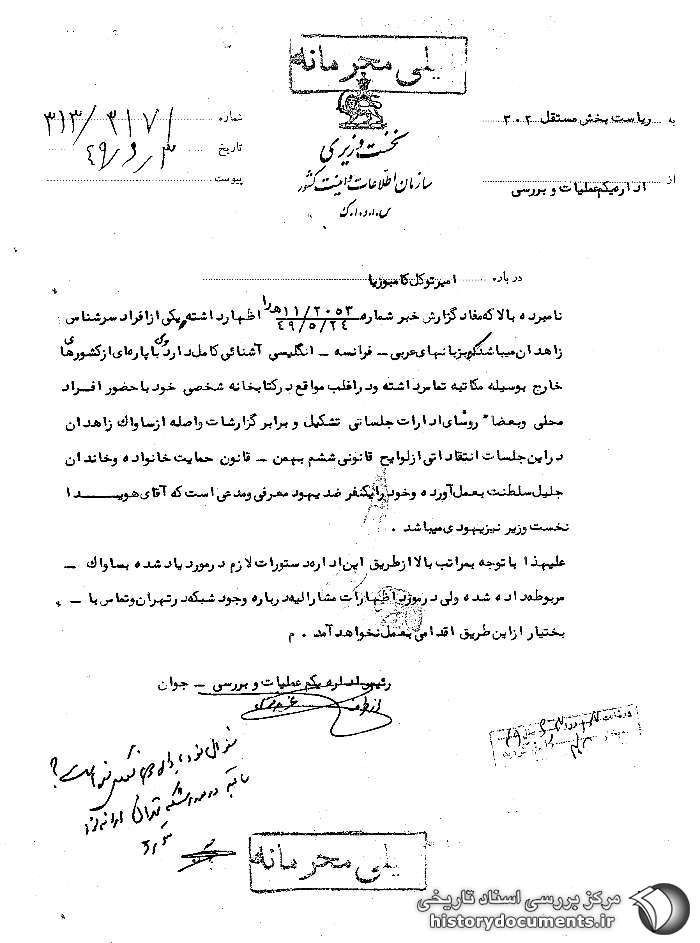 خیلی محرمانه
به ریاست بخش مستقل ۲۰۲
از اداره یکم عملیات و بررسی
نخست وزیری
سازمان اطلاعات و امنیت کشور
س.ا.و.ا.ک
شماره ۳۱۳/۳۱۷۱
تاریخ
پیوست
درباره امیر توکل کامبوزیا
نامبرده بالا که مفاد گزارش خبر شماره ۱۱/۲۰۵۳ ه را اظهار داشته یکی از افراد سرشناس
۴۹/۵/۲۴
زاهدان میباشد که بزبانهای عربی - فرانسه - انگلیسی آشنائی کامل دارد وی با پاره‌ای از کشورهای
خارج بوسیله مکاتبه تماس داشته و در اغلب مواقع در کتابخانه شخصی خود با حضور افراد
محلی و بعضاً روسای ادارات جلساتی تشکیل و برابر گزارشات واصله از ساواک زاهدان
در این جلسات انتقاداتی از لوایح قانونی ششم بهمن - قانون حمایت خانواده و خاندان
جلیل سلطنت بعمل آورده و خود را یکنفر ضد یهود معرفی و مدعی است که آقای هویدا
نخست وزیر نیز یهودی میباشد .
علیهذا با توجه بمراتب بالا از طریق این اداره دستورات لازم در مورد یاد شده بساواک -
مربوطه داده شده ولی در مورد اظهارات مشارالیه درباره وجود شبکه در تهران و تماس با -
بختیار از این طریق اقدامی بعمل نخواهد آمد . م
رئیس اداره یکم عملیات و بررسی - جوان
از طرف
خیلی محرمانه
مرکز بررسی اسناد تاریخی
historydocuments.ir